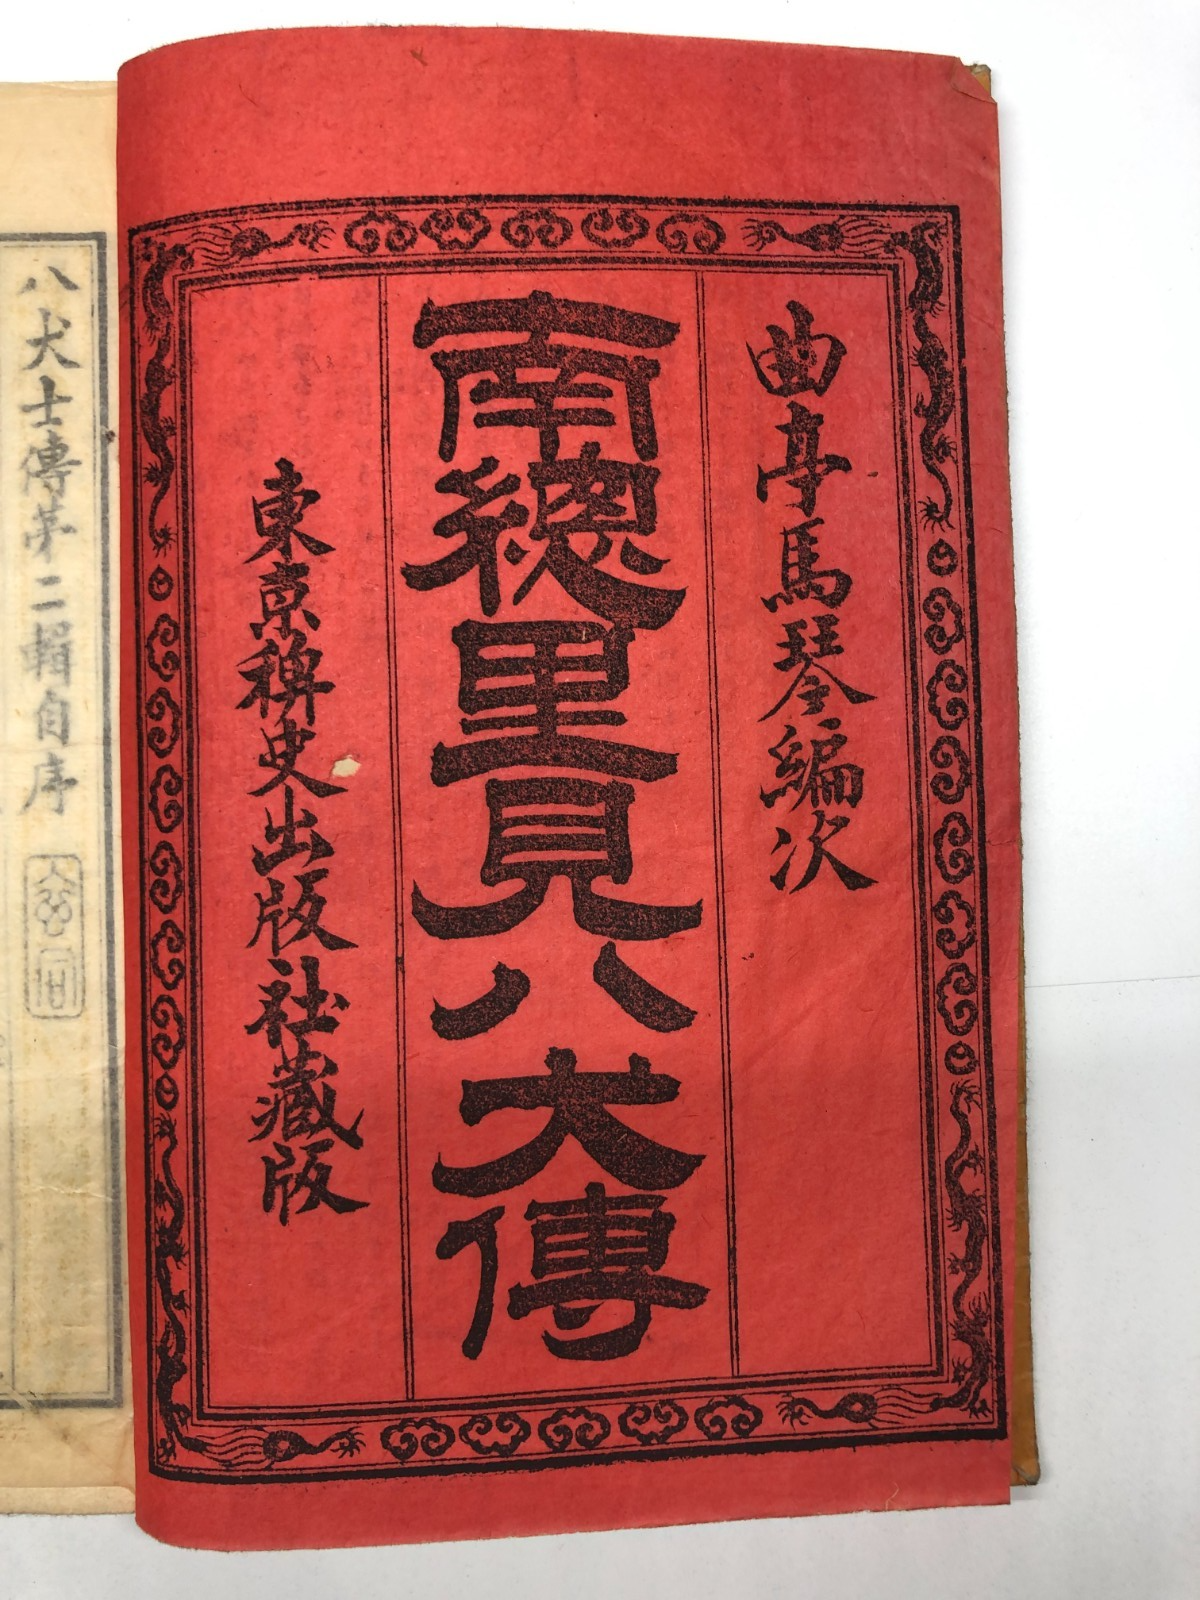 曲亭馬琴編次
南總里見八犬傳
東京稗史出版社藏版
八犬士傳第二輯自序